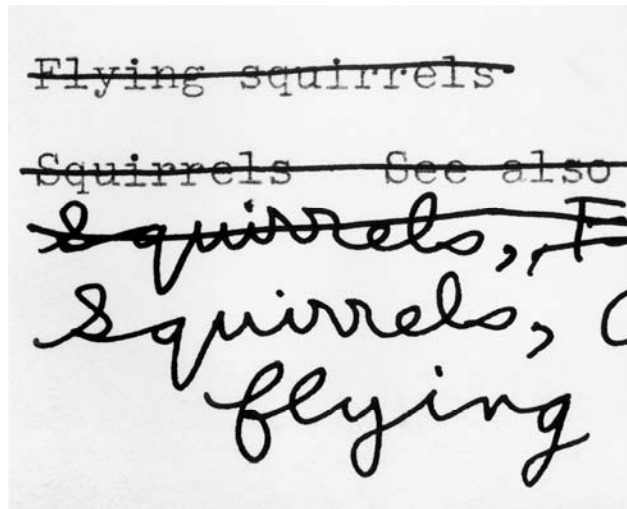 Flying squirrels
Squirrels See also
Squirrels,
Squirrels,
flying